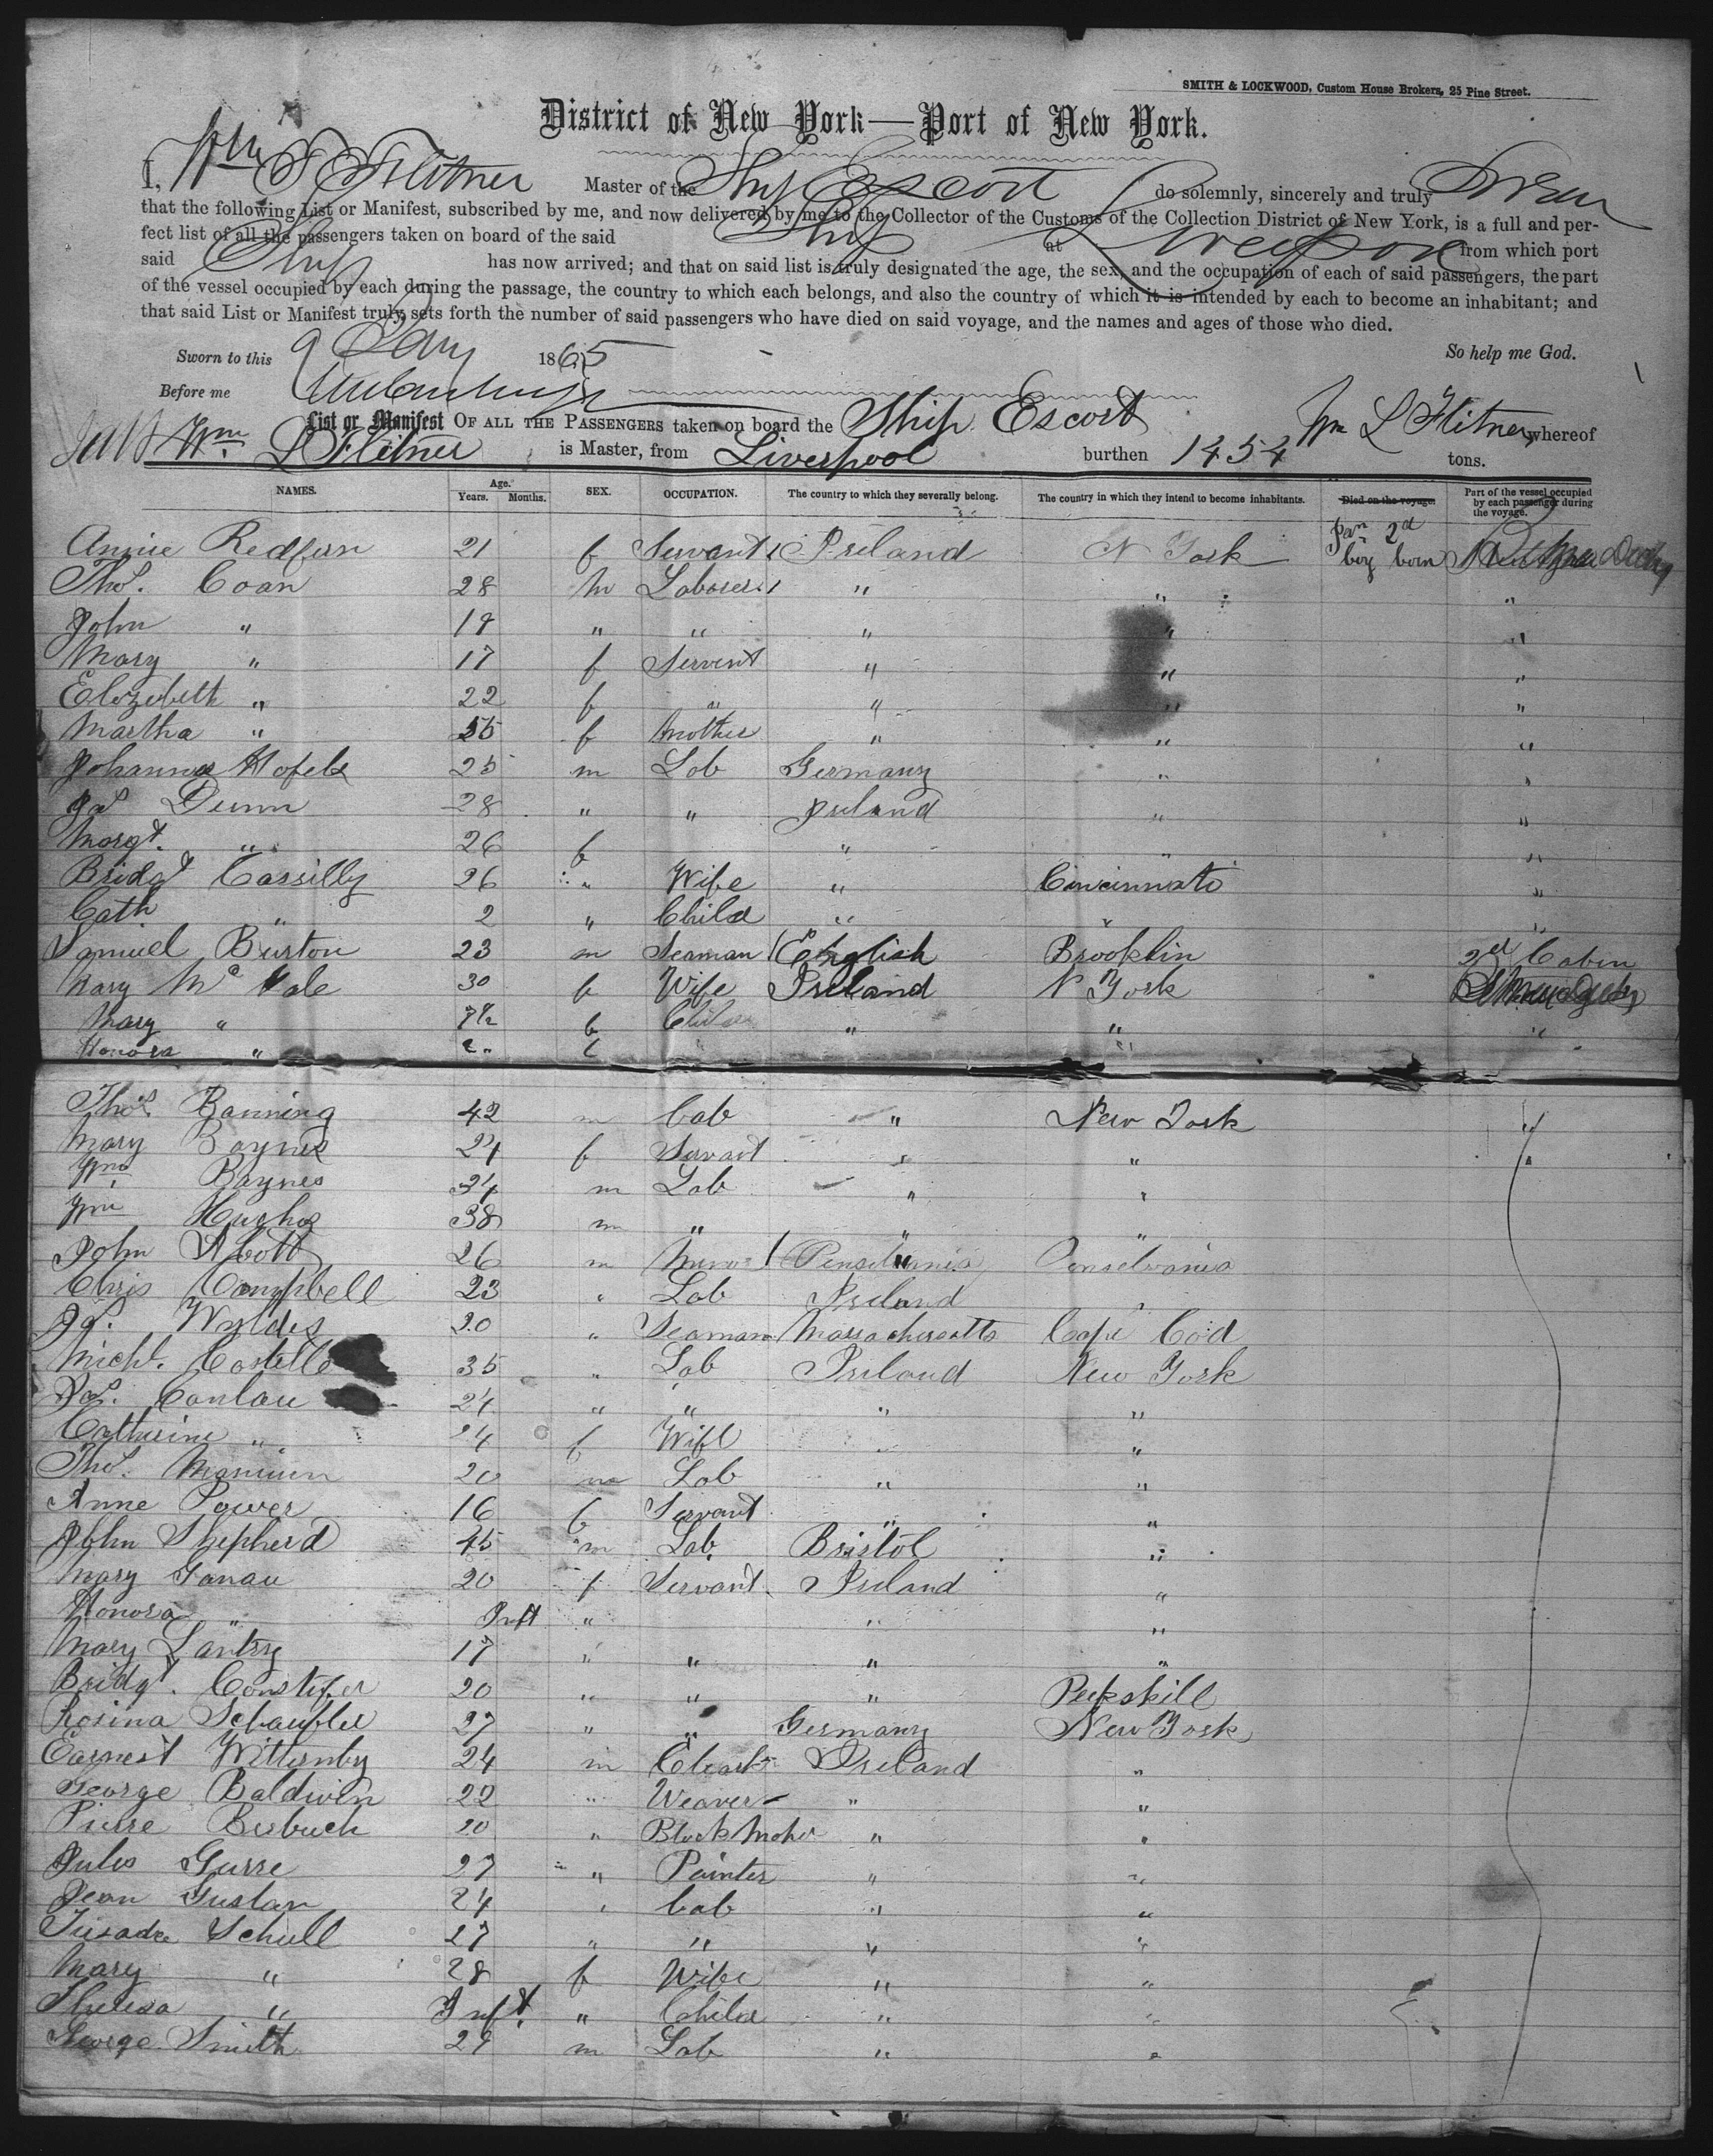 SMITH & LOCKWOOD, Custom House Brokers, 25 Pine Street.
District of New York—Port of New York.
I, Wm Flitner Master of the Ship Escort do solemnly, sincerely and truly Swear
that the following List or Manifest, subscribed by me, and now delivered by me to the Collector of the Customs of the Collection District of New York, is a full and per-
fect list of all the passengers taken on board of the said Ship at Liverpool from which port
said Ship has now arrived; and that on said list is truly designated the age, the sex, and the occupation of each of said passengers, the part
of the vessel occupied by each during the passage, the country to which each belongs, and also the country of which it is intended by each to become an inhabitant; and
that said List or Manifest truly sets forth the number of said passengers who have died on said voyage, and the names and ages of those who died.
Sworn to this 9 Jany 1865 So help me God.
Before me
List or Manifest OF ALL THE PASSENGERS taken on board the Ship Escort Wm L Flitner whereof
Wm. L Flitner is Master, from Liverpool burthen 1454 tons.
NAMES. Age. Years. Months. SEX. OCCUPATION. The country to which they severally belong. The country in which they intend to become inhabitants. Died on the voyage. Part of the vessel occupied by each passenger during the voyage.
Annie Redfern 21 f Servant Ireland N York Jan 2d boy born
Thos. Coan 28 m Laborer " " "
John " 18 " " " " "
Mary " 17 f Servent " " "
Elizebeth " 22 f " " " "
Martha " 55 f Mother " " "
Johannes 25 m Lab Germany " "
Jas Dunn 28 " " Ireland " "
Margt. " 26 f " " "
Bridgt Cassilly 26 " Wife " Cincinnati "
Cath " 2 " Child " " "
Samuel Burton 23 m Seaman English Brooklin 2d Cabin
Mary Mc 30 f Wife Ireland N York
Mary " f Child " " "
Honora " f "
Thos. Banning 42 m Lab " New York "
Mary Baynes 24 f Servant " " "
Wm. Baynes 34 m Lab " "
Wm Hughs 38 m " " "
John Abott 26 m Miner Pensilvania Penselvania
Chris Campbell 23 " Lab Ireland "
Jas. Wyldes 20 " Seaman Massachusetts Cape Cod
Michl. Costello 35 " Lab Ireland New York
Jas. Conlau 24 " " " "
Catherine " 24 f Wife " "
Thos. 20 m Lab " "
Anne Power 16 f Servant " "
John Shepherd 45 m Lab. Bristol "
Mary Fanau 20 f Servant Ireland "
Honora " Inft " " "
Mary 17 " " " "
Bridgt. 20 " " " Peekskill
Rosina Schaufler 27 " " Germany New York
Earnest 24 m Cleark Ireland "
George Baldwin 22 " Weaver " "
Pierre Berbuch 20 " " "
Jules Gurre 27 " Painter " "
Jean Guslan 24 " Lab " "
Schull 27 " " " "
Mary " 28 f Wife " "
Theresa " Inft. " Child " "
George Smith 29 m Lab " "